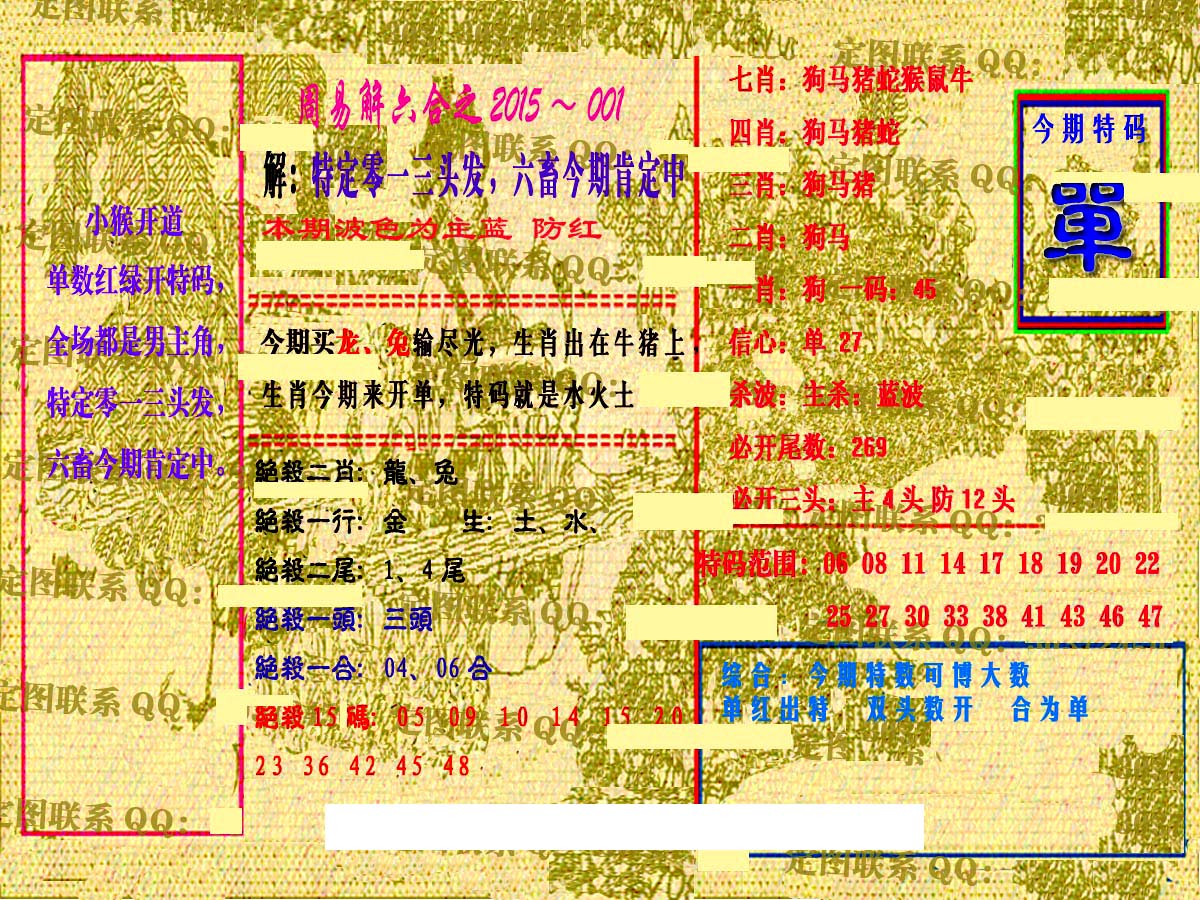 周易解六合之 2015～001
解：特定零一三头发，六畜今期肯定中
本期波色为主蓝 防红
小猴开道
单数红绿开特码，
全场都是男主角，
特定零一三头发，
六畜今期肯定中。
今期买龙、兔输尽光，生肖出在牛猪上，
生肖今期来开单，特码就是水火土
絕殺二肖：龍、兔
絕殺一行：金 生：土、水、
絕殺二尾：1、4尾
絕殺一頭：三頭
絕殺一合：04、06合
絕殺15碼：05 09 10 14 15 20
23 36 42 45 48
七肖：狗马猪蛇猴鼠牛
四肖：狗马猪蛇
三肖：狗马猪
二肖：狗马
一肖：狗 一码：45
信心：单 27
杀波：主杀：蓝波
必开尾数：269
必开三头：主4头防12头
今期特码
單
特码范围：06 08 11 14 17 18 19 20 22
25 27 30 33 38 41 43 46 47
综合：今期特数可博大数
单红出特 双头数开 合为单
定图联系 QQ：